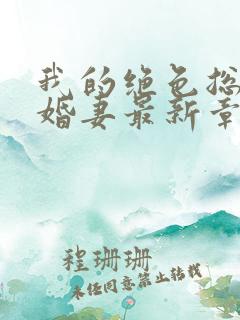 我的绝色总
婚妻最新章
程珊珊
未经同意禁止转载